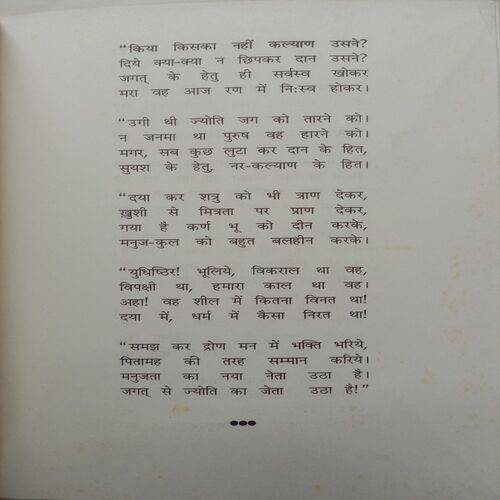 “किया किसका नहीं कल्याण उसने?
दिये क्या-क्या न छिपकर दान उसने?
जगत् के हेतु ही सर्वस्व खोकर
मरा वह आज रण में नि:स्व होकर।
“उगी थी ज्योति जग को तारने को।
न जनमा था पुरुष वह हारने को।
मगर, सब कुछ लुटा कर दान के हित,
सुयश के हेतु, नर-कल्याण के हित।
“दया कर शत्रु को भी त्राण देकर,
ख़ुशी से मित्रता पर प्राण देकर,
गया है कर्ण भू को दीन करके,
मनुज-कुल को बहुत बलहीन करके।
“युधिष्ठिर! भूलिये, विकराल था वह,
विपक्षी था, हमारा काल था वह।
अहा! वह शील में कितना विनत था!
दया में, धर्म में कैसा निरत था!
“समझ कर द्रोण मन में भक्ति भरिये,
पितामह की तरह सम्मान करिये।
मनुजता का नया नेता उठा है।
जगत् से ज्योति का जेता उठा है!”